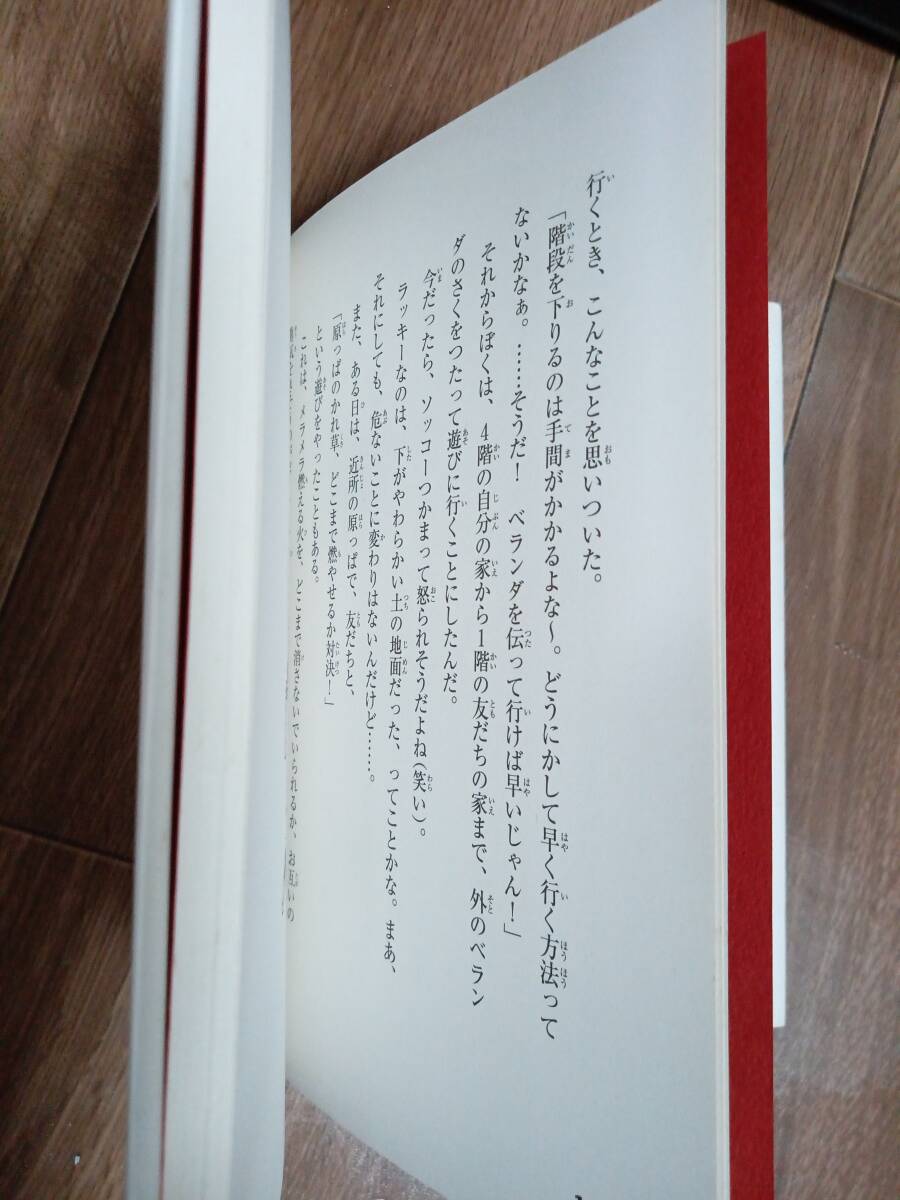 行くとき、こんなことを思いついた。
「階段を下りるのは手間がかかるよな～。どうにかして早く行く方法って
ないかなぁ。……そうだ！　ベランダを伝って行けば早いじゃん！」
それからぼくは、4階の自分の家から1階の友だちの家まで、外のベラン
ダのさくをつたって遊びに行くことにしたんだ。
今だったら、ソッコーつかまって怒られそうだよね（笑い）。
ラッキーなのは、下がやわらかい土の地面だった、ってことかな。まあ、
それにしても、危ないことに変わりはないんだけど……。
また、ある日は、近所の原っぱで、友だちと、
「原っぱのかれ草、どこまで燃やせるか対決！」
という遊びをやったこともある。
これは、メラメラ燃える火を、どこまで消さないでいられるか、お互いの